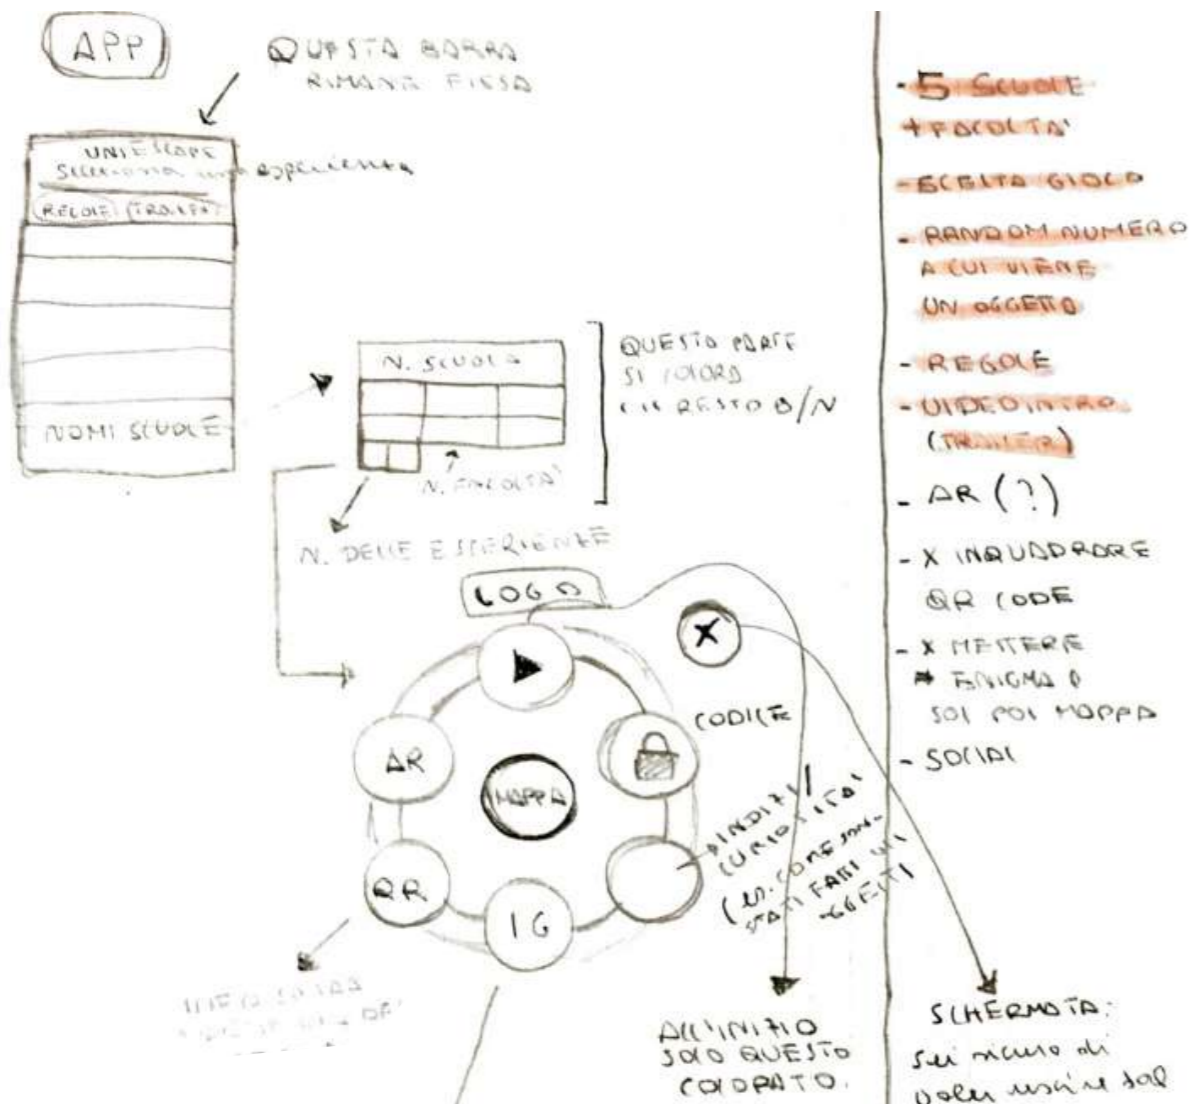 APP
QUESTA BARRA
RIMANE FISSA
UNIESCAPE
seleziona un'esperienza
REGOLE TRAILER
NOMI SCUOLE
N. SCUOLA
N. FACOLTA'
QUESTA PARTE
SI COLORA
RESTO B/N
N. DELLE ESPERIENZE
LOGO
X
CODICE
AR
MAPPA
QR
IG
INDIZI/
CURIOSITA'
(es. COME SONO
STATI FATTI GLI
OGGETTI
ALL'INIZIO
SOLO QUESTO
COLORATO.
SCHERMATA:
sei sicuro di
voler uscire dal
- 5 SCUOLE
+ FACOLTA'
- SCELTA GIOCO
- RANDOM NUMERO
A CUI VIENE
UN OGGETTO
- REGOLE
- VIDEO INTRO
(TRAILER)
- AR (?)
- X INQUADRARE
QR CODE
- X METTERE
ENIGMA
POI MAPPA
- SOCIAL